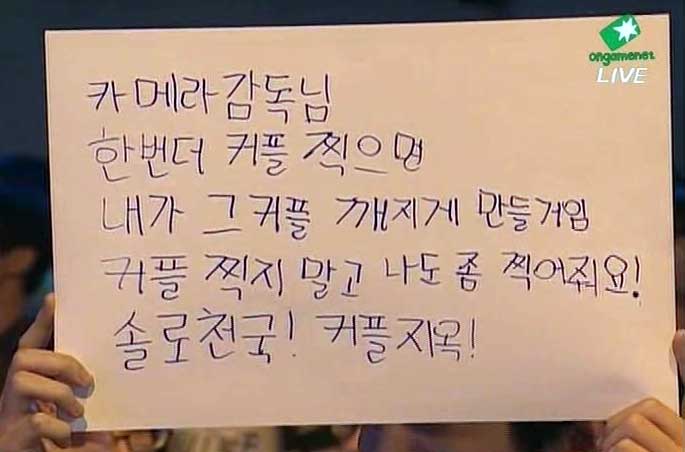 ongamenet
LIVE
카메라감독님
한번더 커플 찍으면
내가 그커플 깨지게 만들거임
커플 찍지 말고 나도 좀 찍어줘요!
솔로천국! 커플지옥!